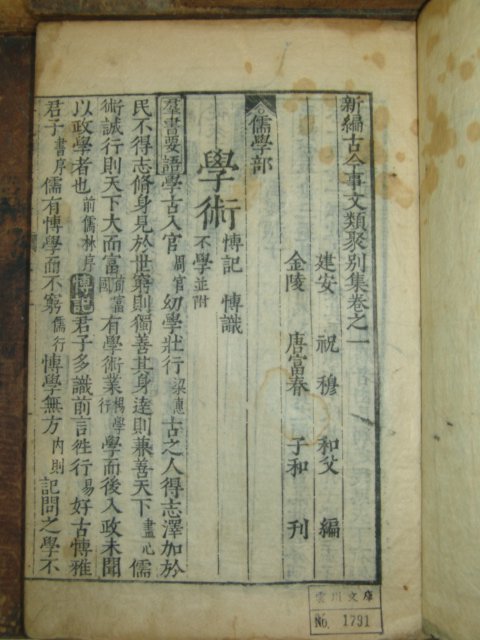 新編古今事文類聚別集卷之一
建安 祝穆 和父 編
金陵 唐富春 子和 刊
儒學部
學術
博記 博識
不學並附
羣書要語學古入官周官幼學壯行梁惠古之人得志澤加於
民不得志脩身見於世窮則獨善其身達則兼善天下盡心儒
術誠行則天下大而富前富國有學術業楊學行學而後入政未聞
以政學者也前儒林序博記君子多識前言徃行易好古博雅
君子書序儒有博學而不窮儒行博學無方内則記問之學不
雲川文庫
No. 1791